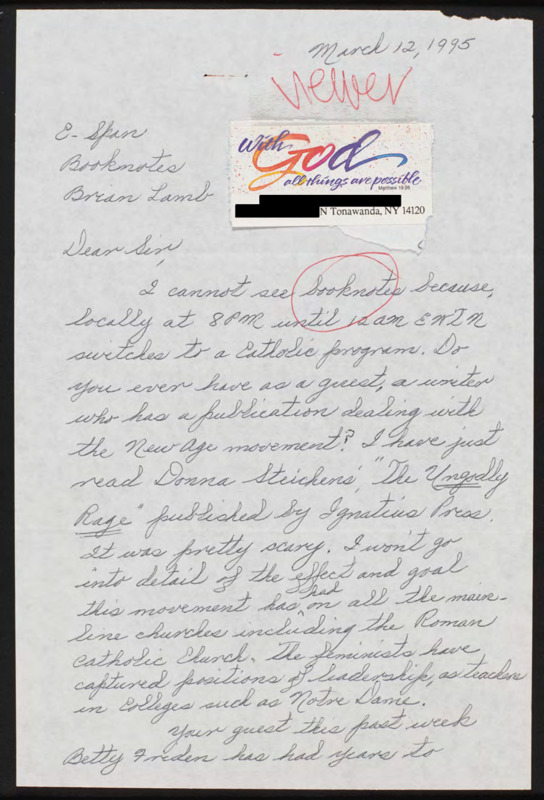 March 12, 1995
viewer
With God
all things are possible
Matthew 19:26
N Tonawanda, NY 14120
C-Span
Booknotes
Brian Lamb
Dear Sir,
I cannot see booknotes because,
locally at 8PM until 12 AM EWTN
switches to a Catholic program. Do
you ever have as a guest, a writer
who has a publication dealing with
the New Age movement? I have just
read Donna Steichens', "The Ungodly
Rage" published by Ignatius Press.
It was pretty scary. I won't go
into detail of the effect and goal
this movement has had on all the main-
line churches including the Roman
Catholic Church. The feminists have
captured positions of leadership, as teachers
in Colleges such as Notre Dame.
Your guest this past week
Betty Friden has had years to